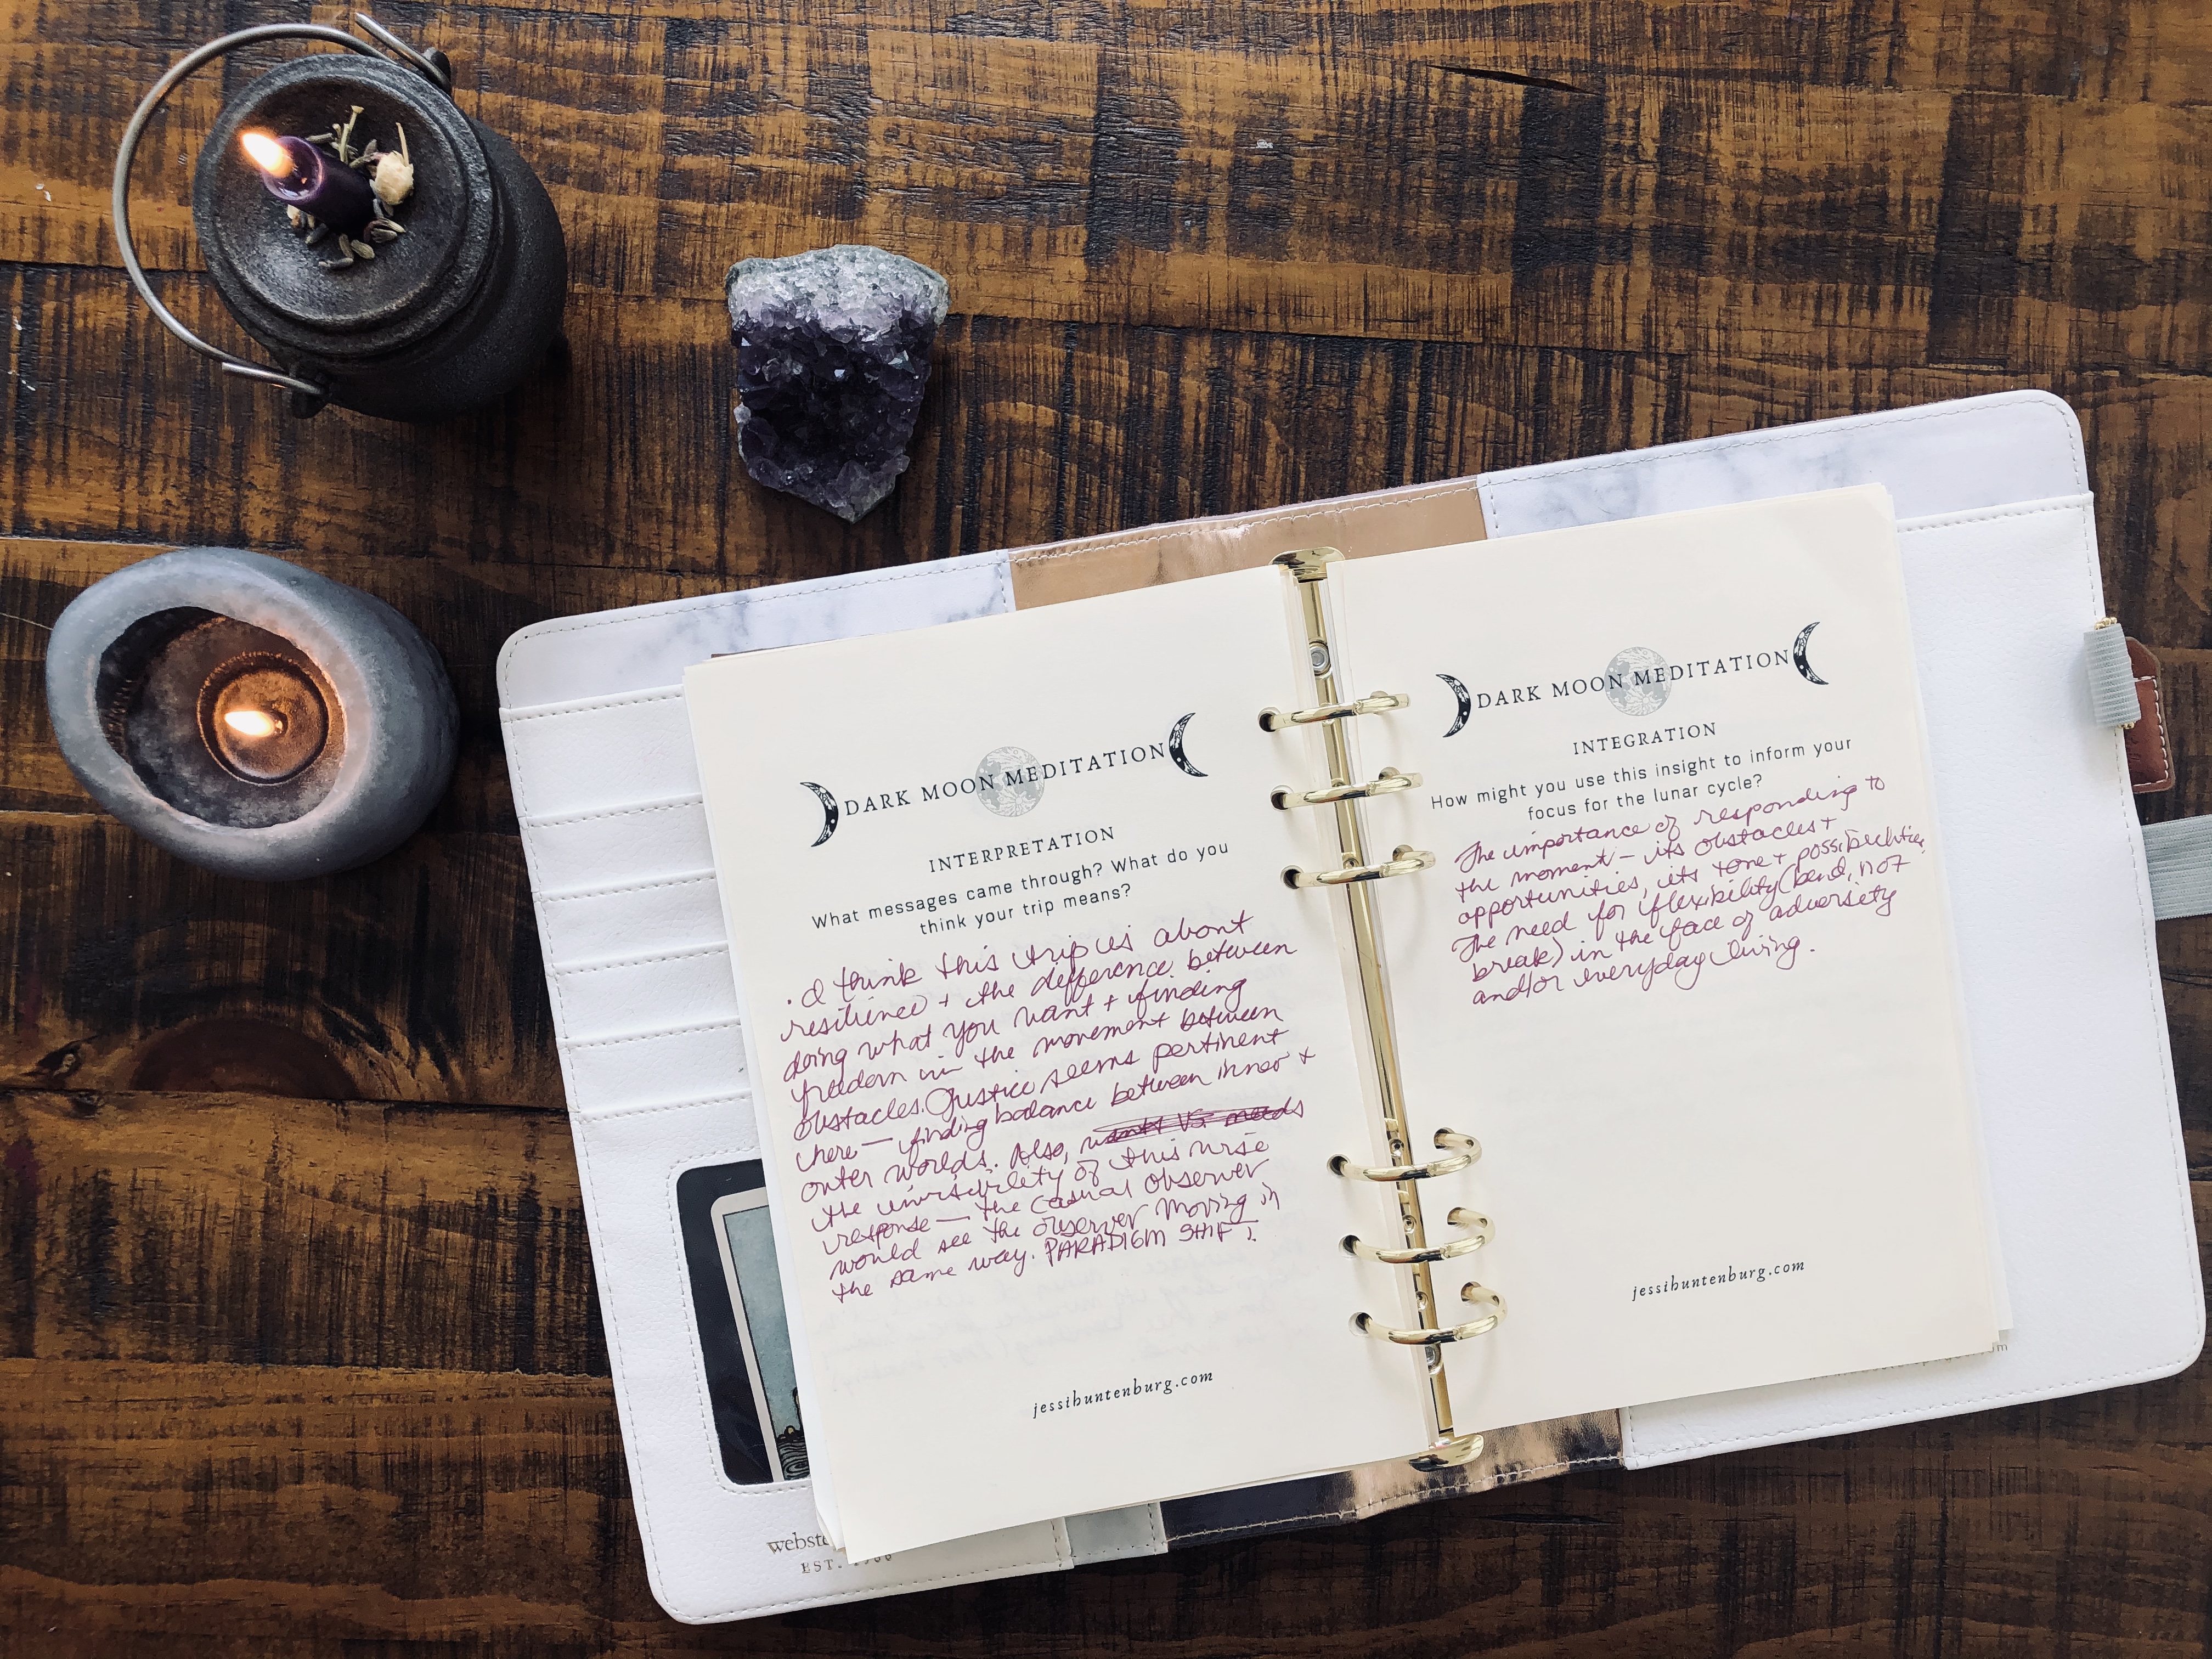 DARK MOON MEDITATION
INTERPRETATION
What messages came through? What do you
think your trip means?
· I think this trip is about
resilience + the difference between
doing what you want + finding
freedom in the movement between
obstacles. Justice seems pertinent
here — finding balance between inner +
outer worlds. Also, wants vs needs
the invisibility of this wise
response — the casual observer
would see the observer moving in
the same way. PARADIGM SHIFT.
jessihuntenburg.com
EST.
DARK MOON MEDITATION
INTEGRATION
How might you use this insight to inform your
focus for the lunar cycle?
The importance of responding to
the moment — its obstacles +
opportunities, its tone + possibilities.
The need for flexibility (bend, not
break) in the face of adversity
and/or everyday living.
jessihuntenburg.com